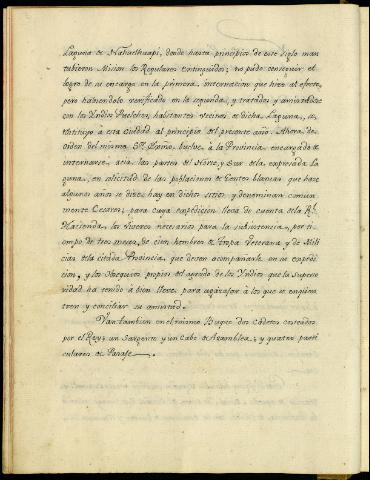 Laguna de Nahuelhuapi, donde hasta principios de este siglo man
tubieron Mision los Regulares extinguidos; no pudo conseguir el
logro de su encargo en la primera internacion que hizo al efecto,
pero habiendolo verificado en la segunda, y tratados y amistádose
con los Yndios Puelches, habitantes vecinos de dicha Laguna, se
restituyo á esta Ciudad al principio del presente año. Ahora de
orden del mismo Sᵒʳ Baño, buelve á la Provincia encargado de
internarse, acia las partes del Norte, y Sur de la expresada La
guna, en solicitud de las poblaciones de Gentes blancas, que hace
algunos años se dice, hay en dichos sitios, y denominan comun
mente Cesares; para cuya expedicion lleva de cuenta de la Rˡ.
Hacienda, los viveres necesarios para la subsistencia, por ti
empo de tres meses, de cien hombres de tropa Veterana y de Mili
cias de la citada Provincia, que deven acompañarle en su expedi
cion, y los Obsequios propios del agrado de los Yndios que la Superio
ridad ha tenido á bien lleve para agasajar á los que se enquen
tren y conciliar su amistad.
Van tambien en el mismo Buque dos Cadetes costeados
por el Rey; un Sargento y un Cabo de Asamblea; y quatro parti
culares de Pasaje.